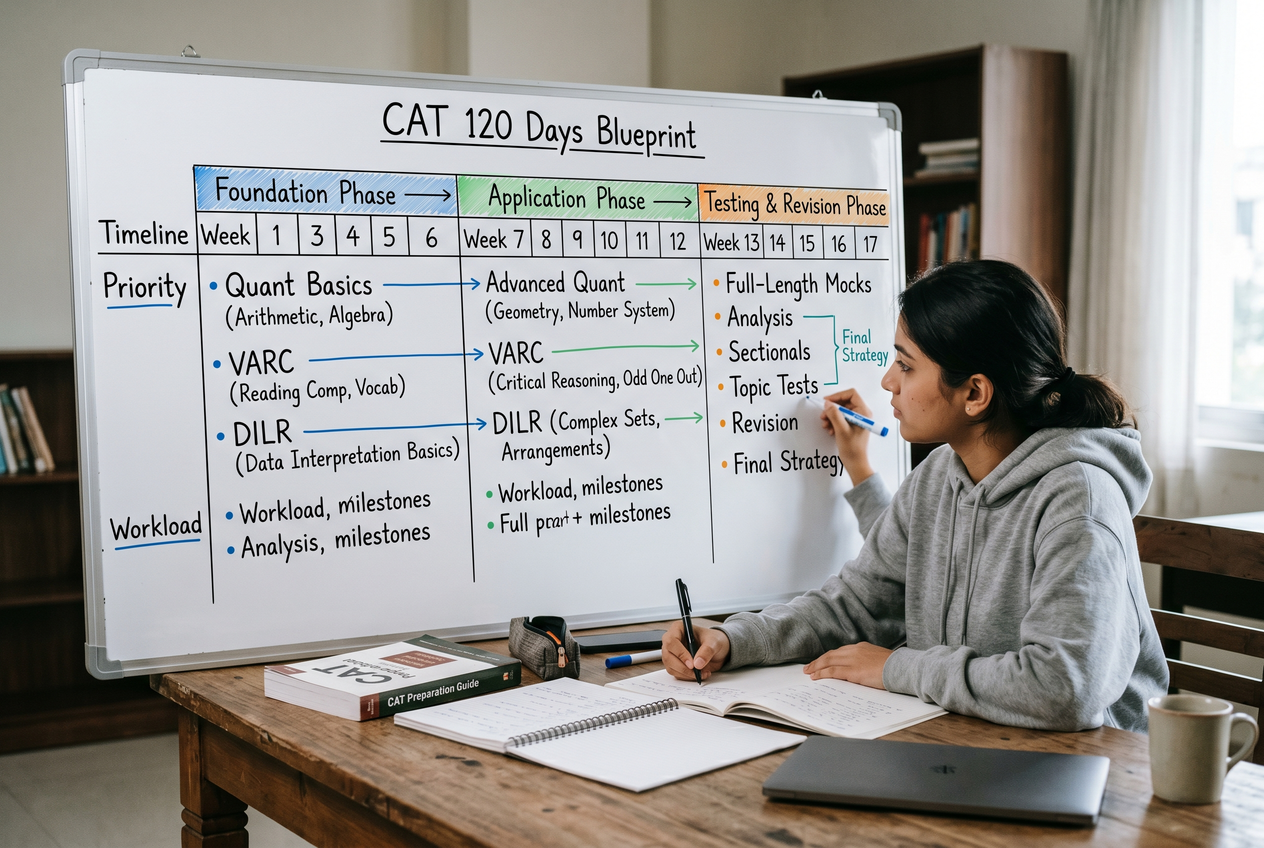 CAT 120 Days Blueprint
Foundation Phase → Application Phase → Testing & Revision Phase
Timeline Week 1 3 4 5 6 Week 7 8 9 10 11 12 Week 13 14 15 16 17
Priority
• Quant Basics
(Arithmetic, Algebra)
• VARC
(Reading Comp, Vocab)
• DILR
(Data Interpretation Basics)
Advanced Quant
(Geometry, Number System)
VARC
(Critical Reasoning, Odd One Out)
DILR (Complex Sets,
Arrangements)
• Full-Length Mocks
• Analysis
• Sectionals
• Topic Tests
• Revision
• Final Strategy
Final
Strategy
Workload
• Workload, milestones
• Analysis, milestones
• Workload, milestones
• Full + milestones
CAT
CAT Preparation Guide